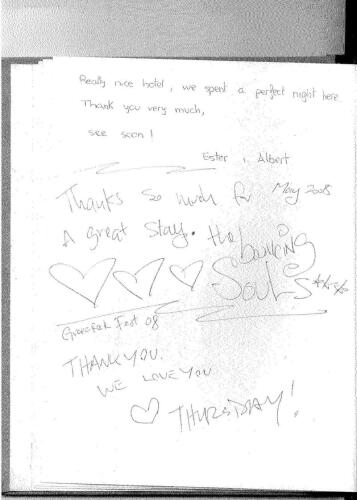 Really nice hotel, we spent a perfect night here.
Thank you very much,
see soon!
Ester, Albert
Thanks so much for May 2008
A great stay. the
bouncing
Souls
Fest 08
THANK YOU.
WE LOVE YOU
THURSDAY!